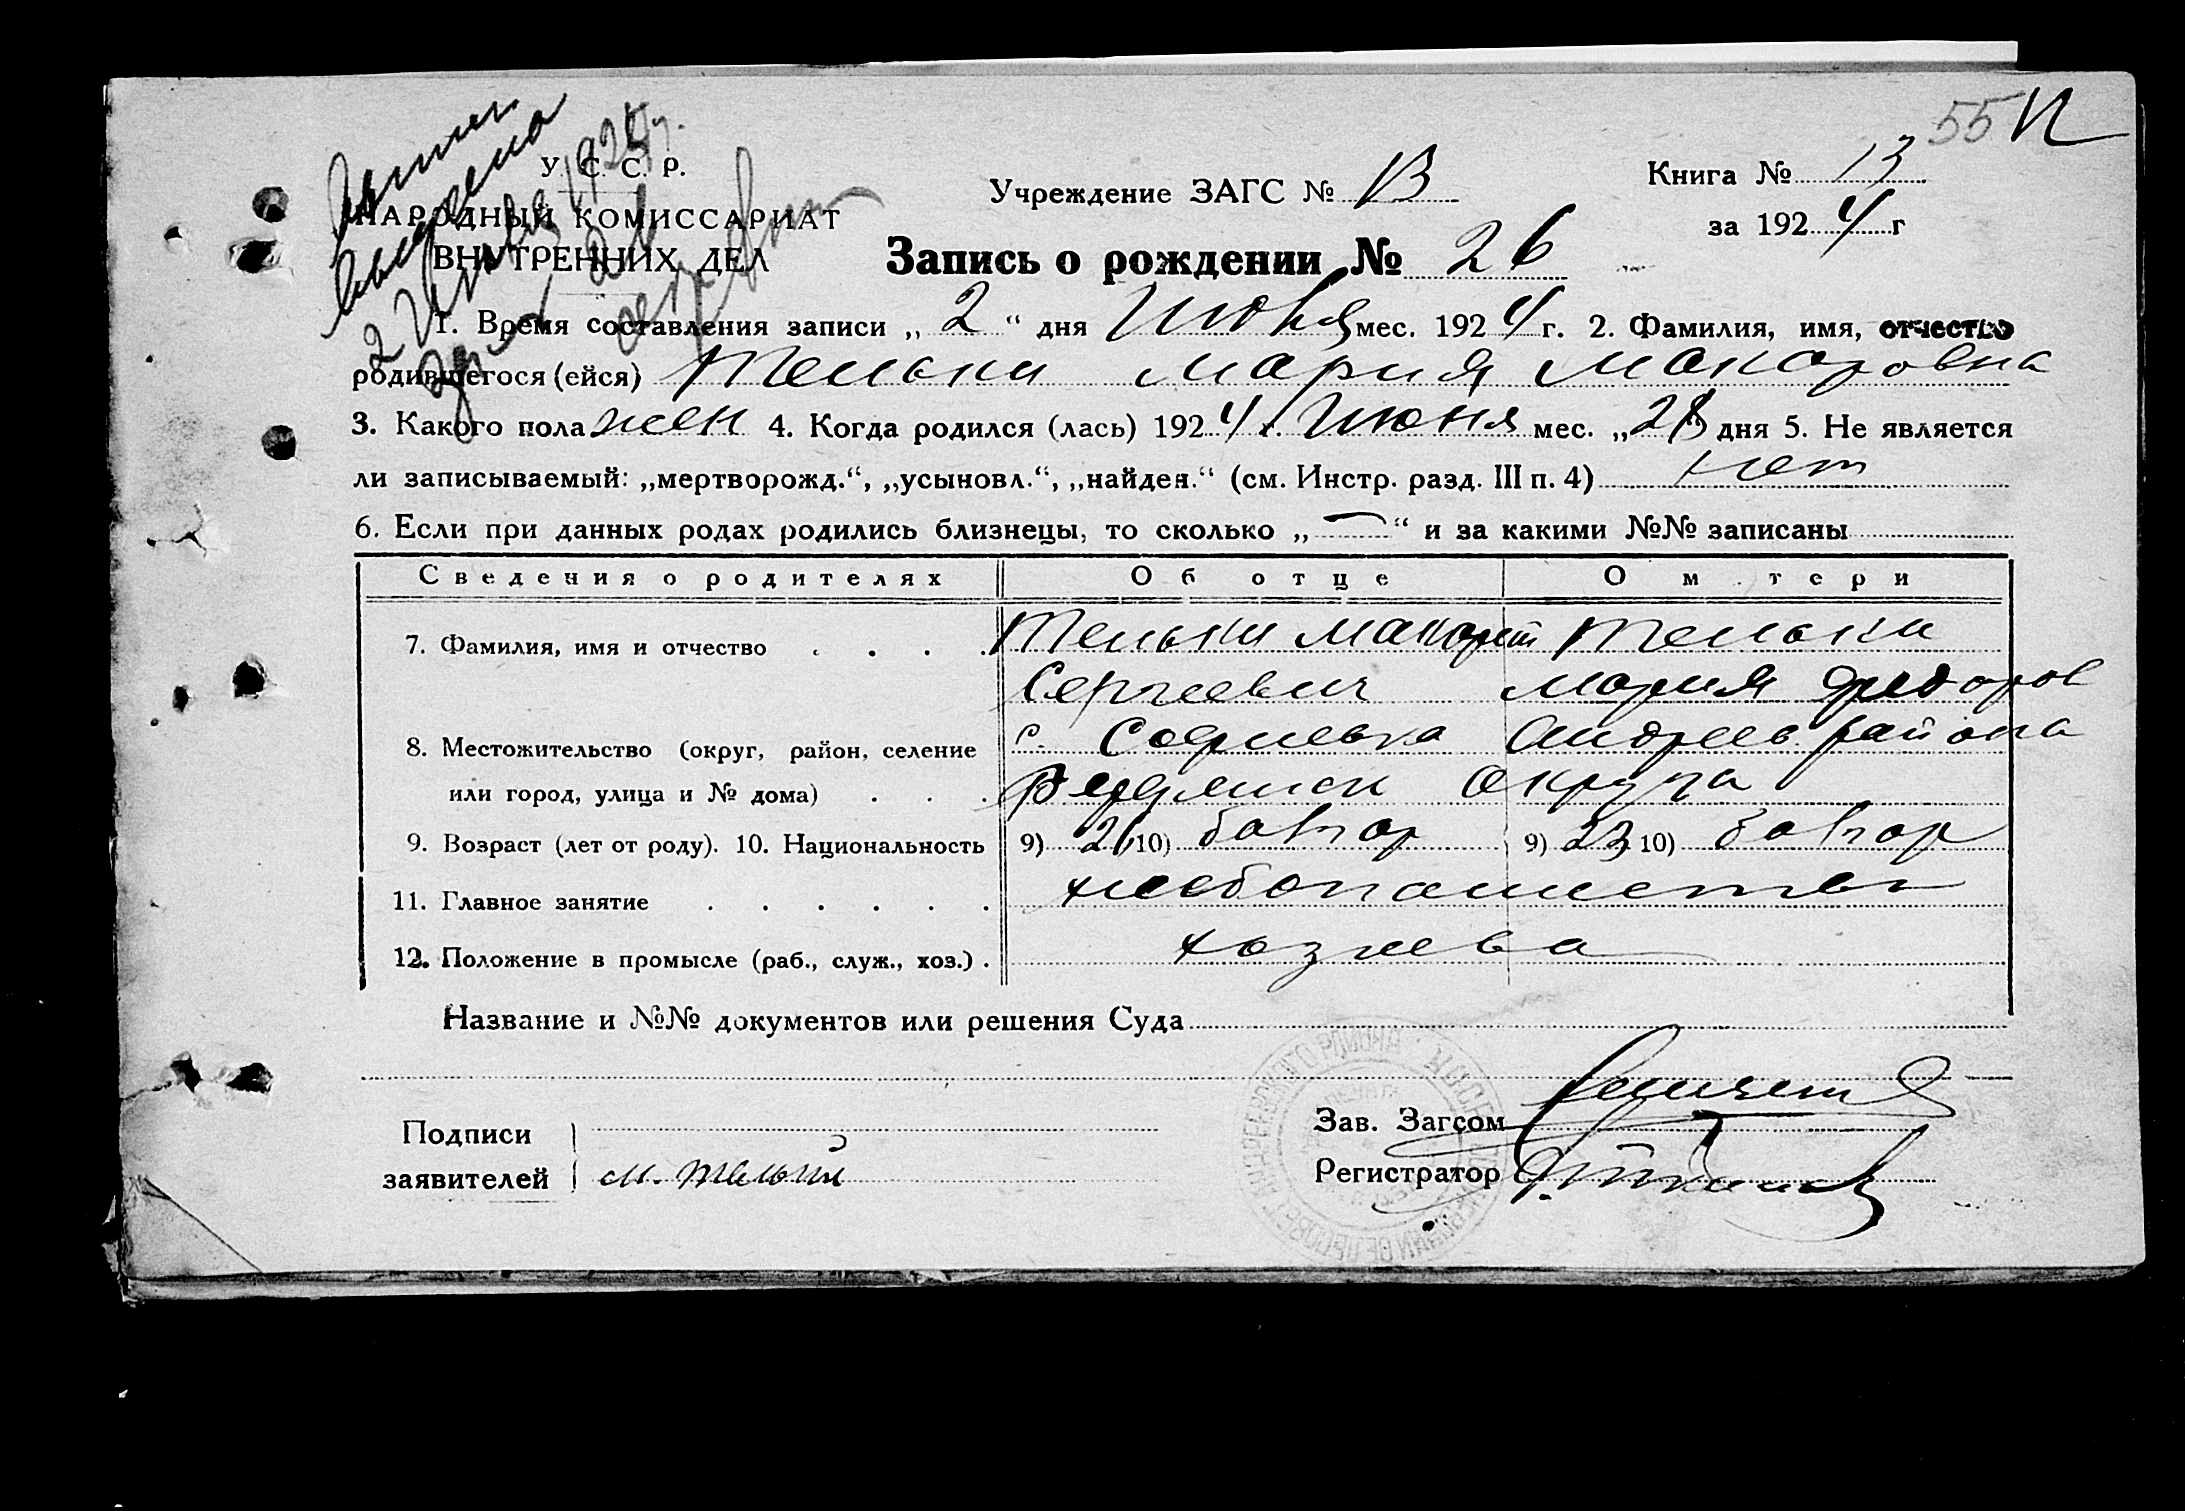 55
У. С. С. Р.
НАРОДНЫЙ КОМИССАРИАТ
ВНУТРЕННИХ ДЕЛ
2 Июля 192
Учреждение ЗАГС № 13
Книга № 13
за 1924 г
Запись о рождении № 26
1. Время составления записи „ 2 “ дня Июля мес. 1924 г. 2. Фамилия, имя, отчество
родившегося (ейся) Тельки Мария Макаровна
3. Какого пола жен 4. Когда родился (лась) 1924 г. Июня мес. „28“ дня 5. Не является
ли записываемый: „мертворожд.“, „усыновл.“, „найден.“ (см. Инстр. разд. III п. 4) нет
6. Если при данных родах родились близнецы, то сколько „—“ и за какими №№ записаны
Сведения о родителях Об отце О м тери
7. Фамилия, имя и отчество Тельки Макарий Тельки
Сергеевич Мария Федоров
8. Местожительство (округ, район, селение с. Софиевка Андреев. района
или город, улица и № дома) округа
9. Возраст (лет от роду). 10. Национальность 9) 26 10) болгар 9) 23 10) болгар
11. Главное занятие хлебопашество
12. Положение в промысле (раб., служ., хоз.) хозяева
Название и №№ документов или решения Суда
Подписи
заявителей М. Тельки
Зав. Загсом
Регистратор